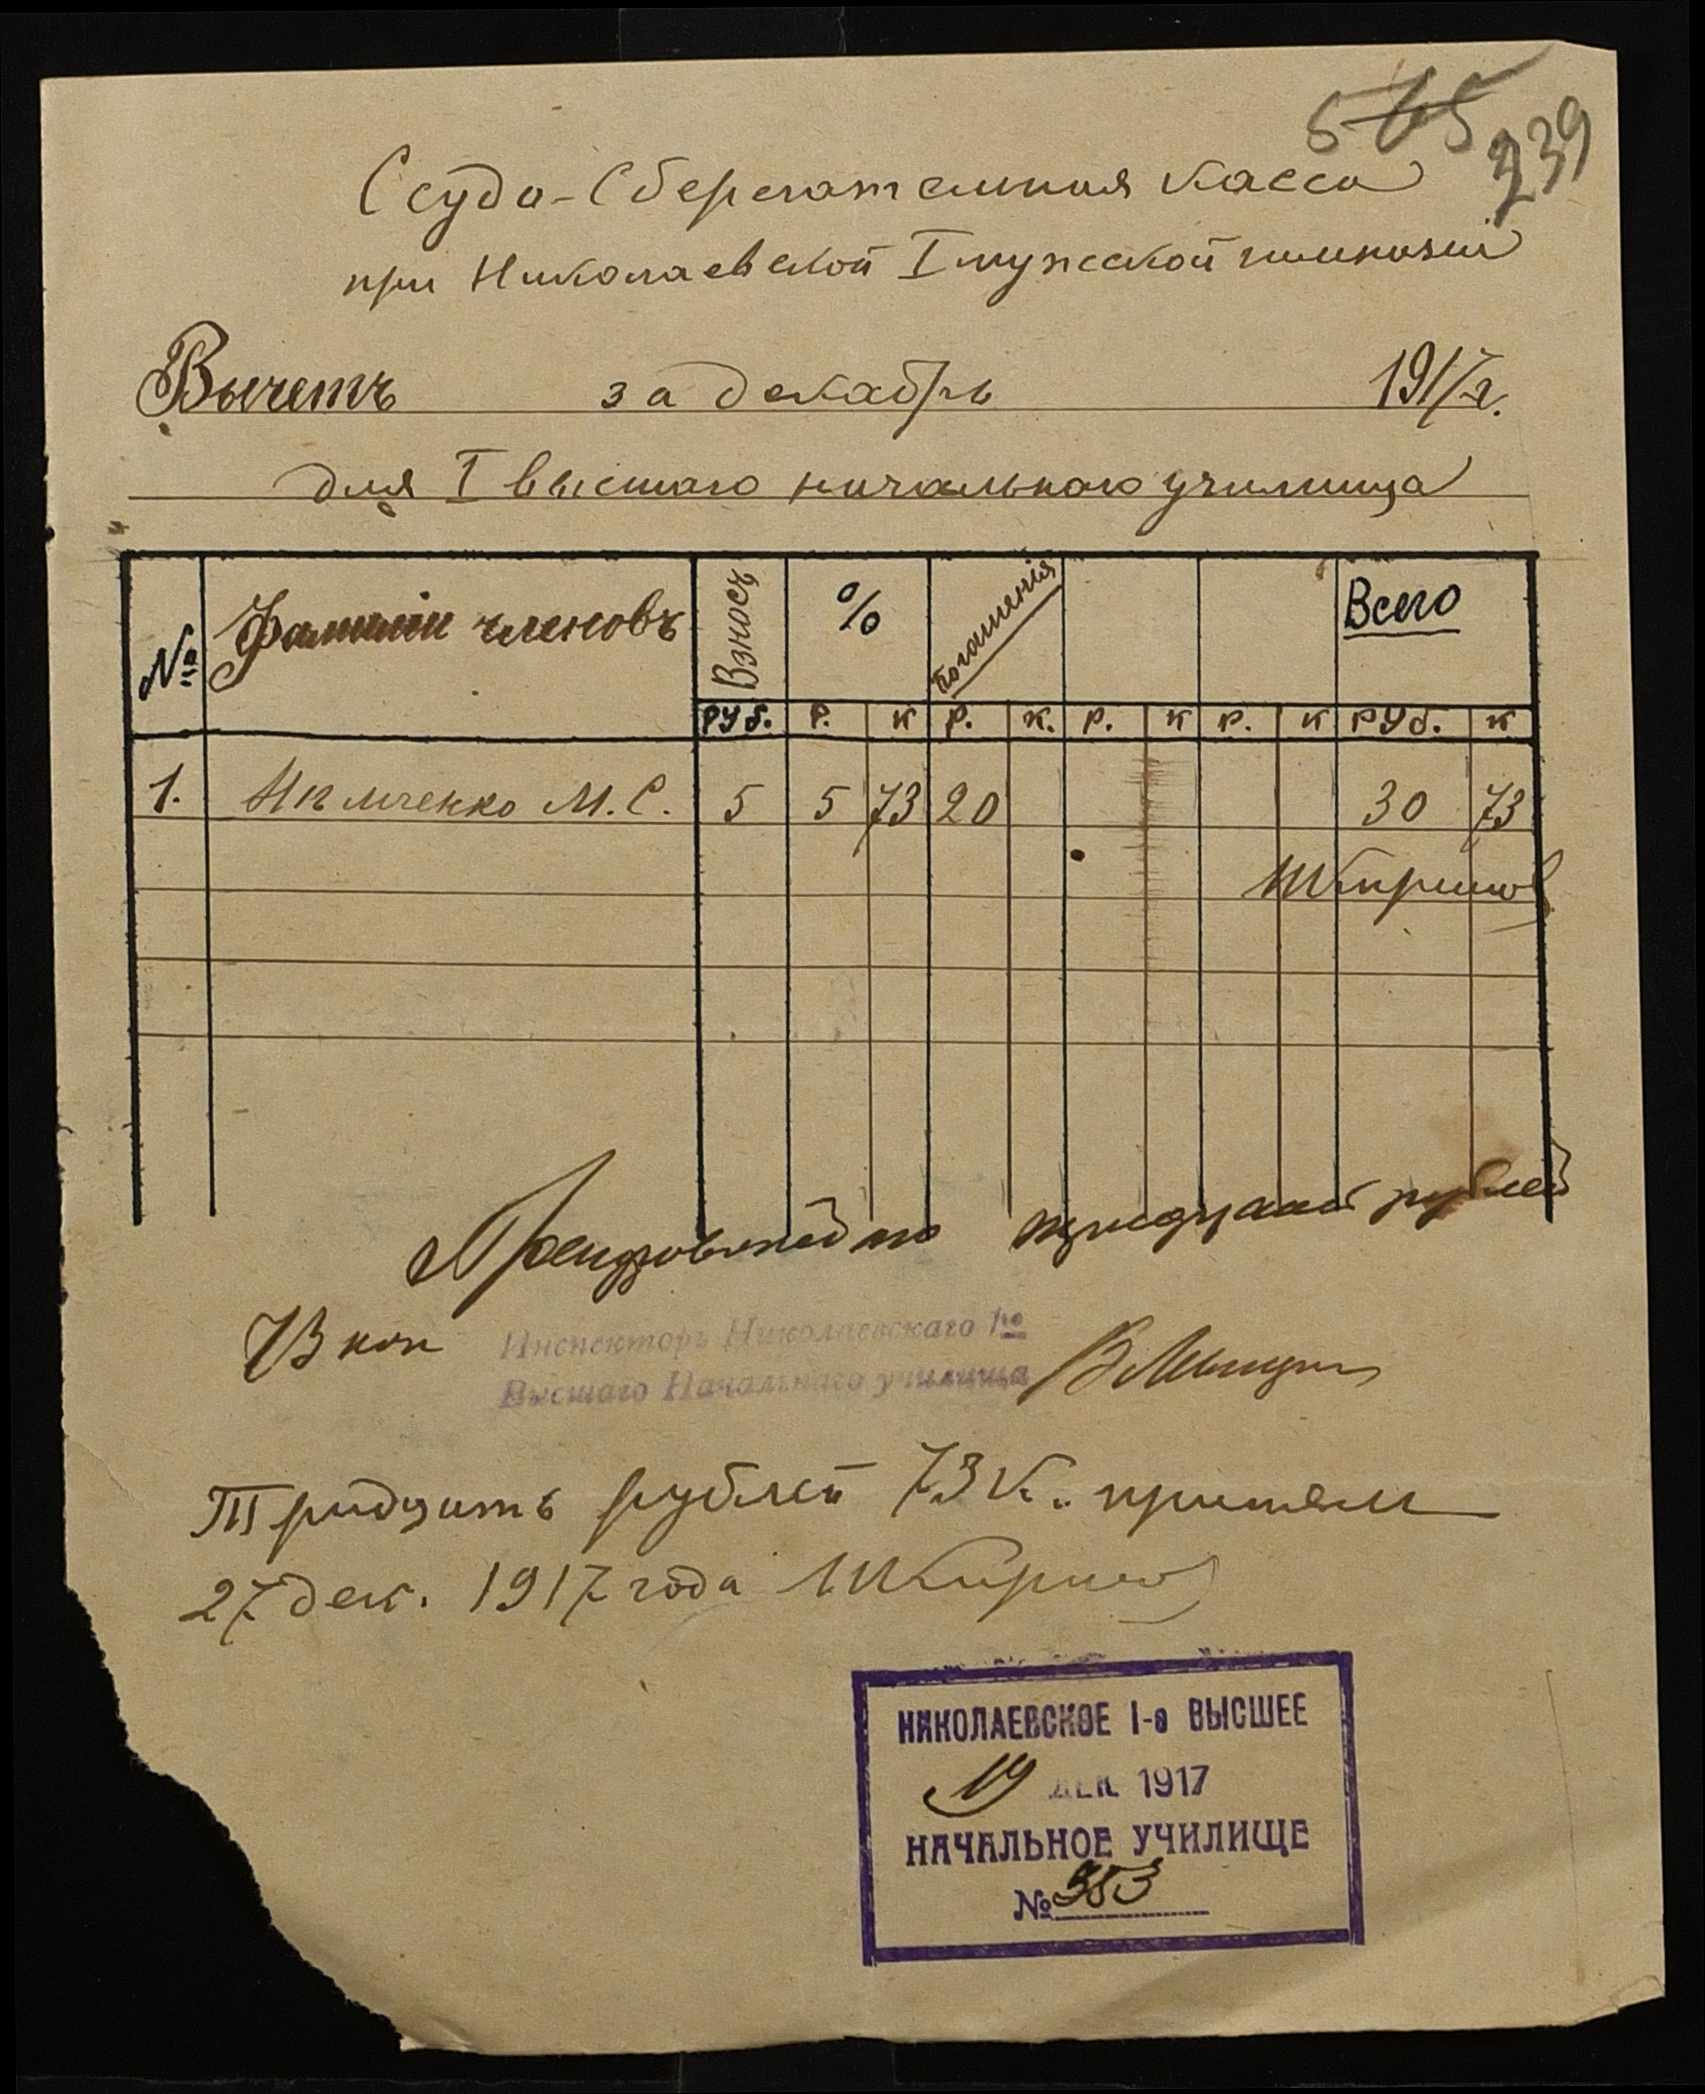 565
239
Ссудо-Сберегательная Касса
при Николаевской I мужской гимназии
Вычетъ за декабрь 1917 г.
для I высшаго начальнаго училища
№ Фамиліи членовъ Взносъ % Погашенія Всего
руб. р. к р. к. р. к р. к руб. к
1. М. С. 5 5 73 20 30 73
тридцать рублей
73 коп
Инспекторъ Николаевскаго 1го
Высшаго Начальнаго училища
Тридцать рублей 73 к. принялъ
27 дек. 1917 года
НИКОЛАЕВСКОЕ I-е ВЫСШЕЕ
19 ДЕК 1917
НАЧАЛЬНОЕ УЧИЛИЩЕ
№ 353